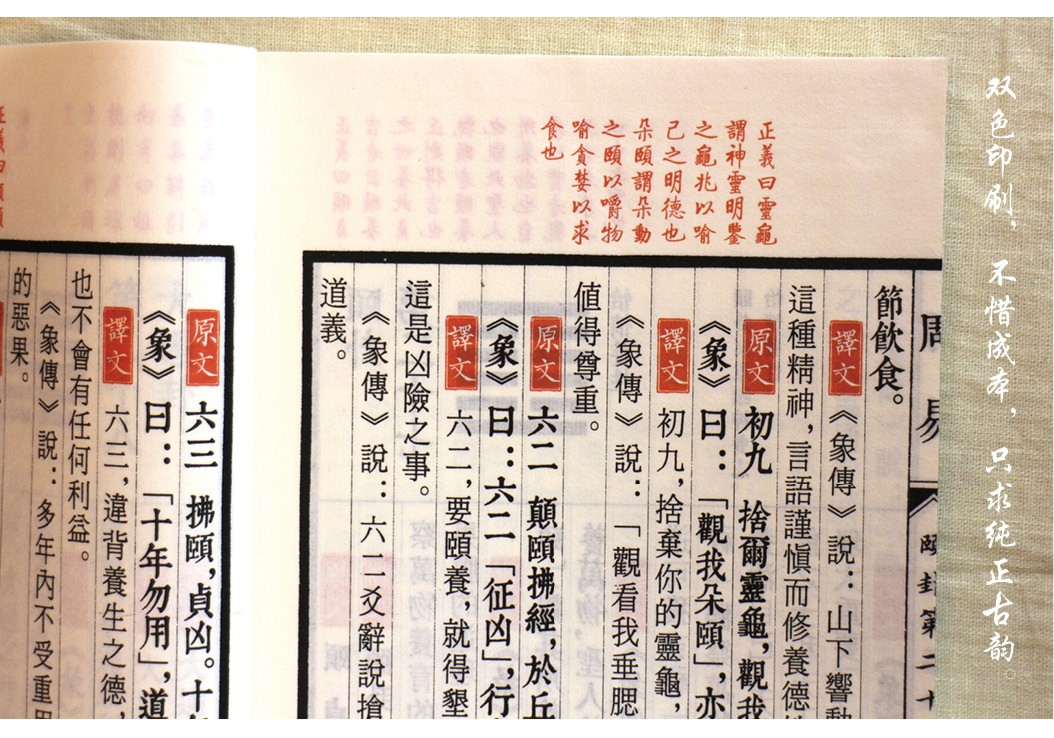 双色印刷，不惜成本，只求纯正古韵。
正義曰靈龜
謂神靈明鑒
之龜兆以喻
己之明德也
朵頤謂朵動
之頤以嚼物
喻貪婪以求
食也
周易
節飲食。
譯文 《象傳》說：山下響動
這種精神，言語謹慎而修養德
原文 初九 捨爾靈龜，觀我
《象》曰：「觀我朵頤」，亦
譯文 初九，捨棄你的靈龜，
《象傳》說：「觀看我垂腮
值得尊重。
原文 六二 顛頤拂經，於丘
《象》曰：六二「征凶」，行
譯文 六二，要頤養，就得墾
這是凶險之事。
《象傳》說：六二爻辭說搶
道義。
原文 六三 拂頤，貞凶。十年
《象》曰：「十年勿用」，道
譯文 六三，違背養生之德，
也不會有任何利益。
《象傳》說：多年內不受重用
的惡果。